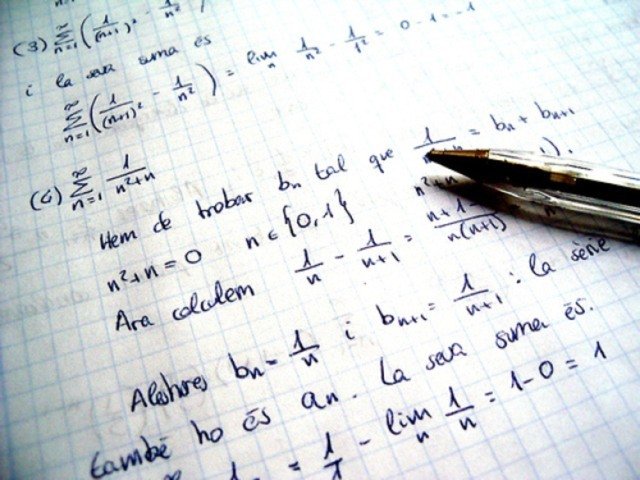 (3) ∑_{n=1}^{∞} (1/(n+1)² - 1/n²)
i la seva suma és
∑_{n=1}^{∞} (1/(n+1)² - 1/n²) = lim_n 1/n² - 1/1² = 0 - 1 = -1
(4) ∑_{n=1}^{∞} 1/(n²+n)
Hem de trobar bn tal que 1/ = bn + bn+1
n²+n = 0 n ∈ {0,1}
Ara calculem 1/n - 1/(n+1) = n+1- /n(n+1)
Aleshores bn = 1/n i bn+1 = 1/(n+1) : la sèrie
també ho és an. La seva suma és.
1 = 1/1 - lim_n 1/n = 1-0 = 1